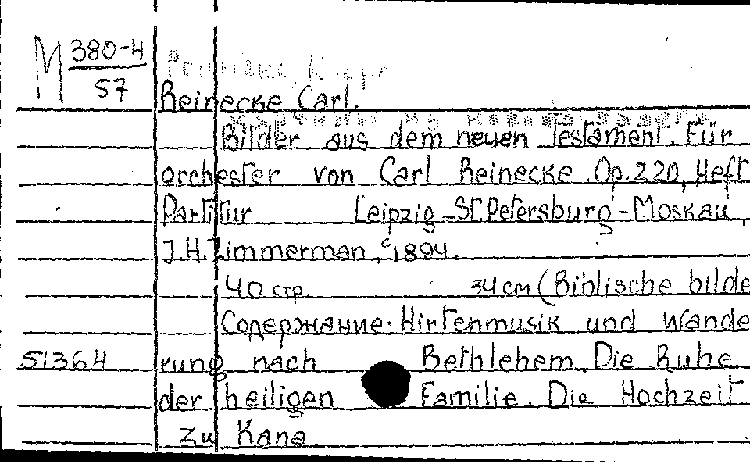 M 380-4
57
Reinecke Carl.
Bilder aus dem neuen Testament. Für
orchester von Carl Reinecke. Op. 220, Heft
Partitur Leipzig-St.Petersburg-Moskau,
J.H. Zimmerman, c 1894.
40 стр. 34 см (Biblische bilde
Содержание: Hirtenmusik und Wande
51364 rung nach Bethlehem. Die Ruhe
der heiligen Familie. Die Hochzeit
zu Kana